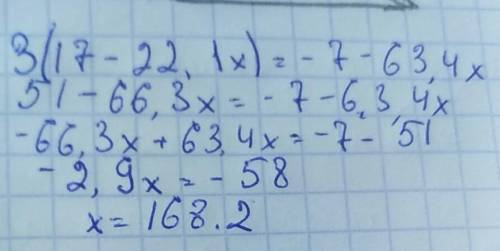 3(17-22,1x)=-7-63,4x
51-66,3x=-7-6,3,4x
-66,3x+63,4x=-7-51
-2,9x=-58
x=168.2